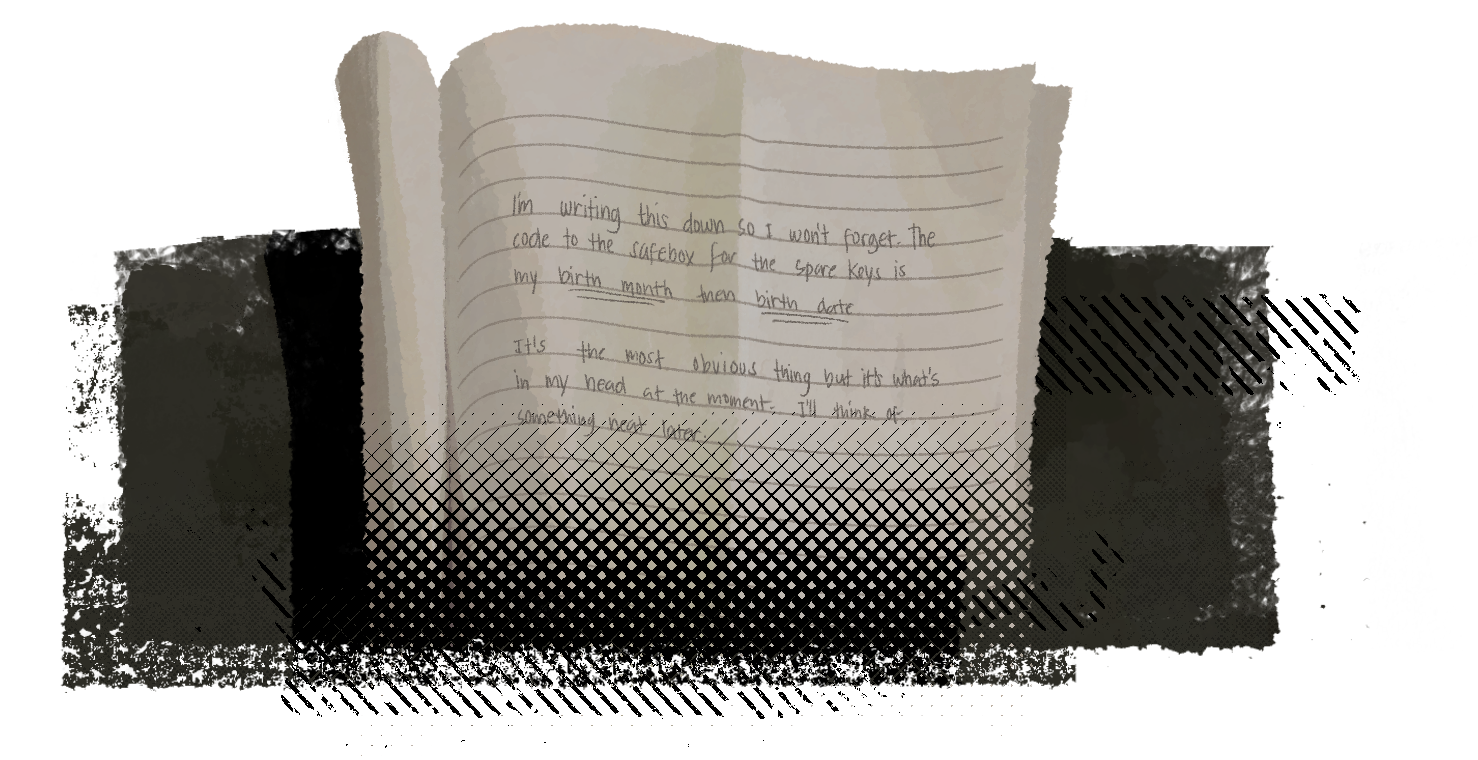 I'm writing this down so I won't forget. The
code to the safebox for the spare keys is
my birth month then birth date
It's the most obvious thing but it's what's
in my head at the moment. I'll think of
something neat later.